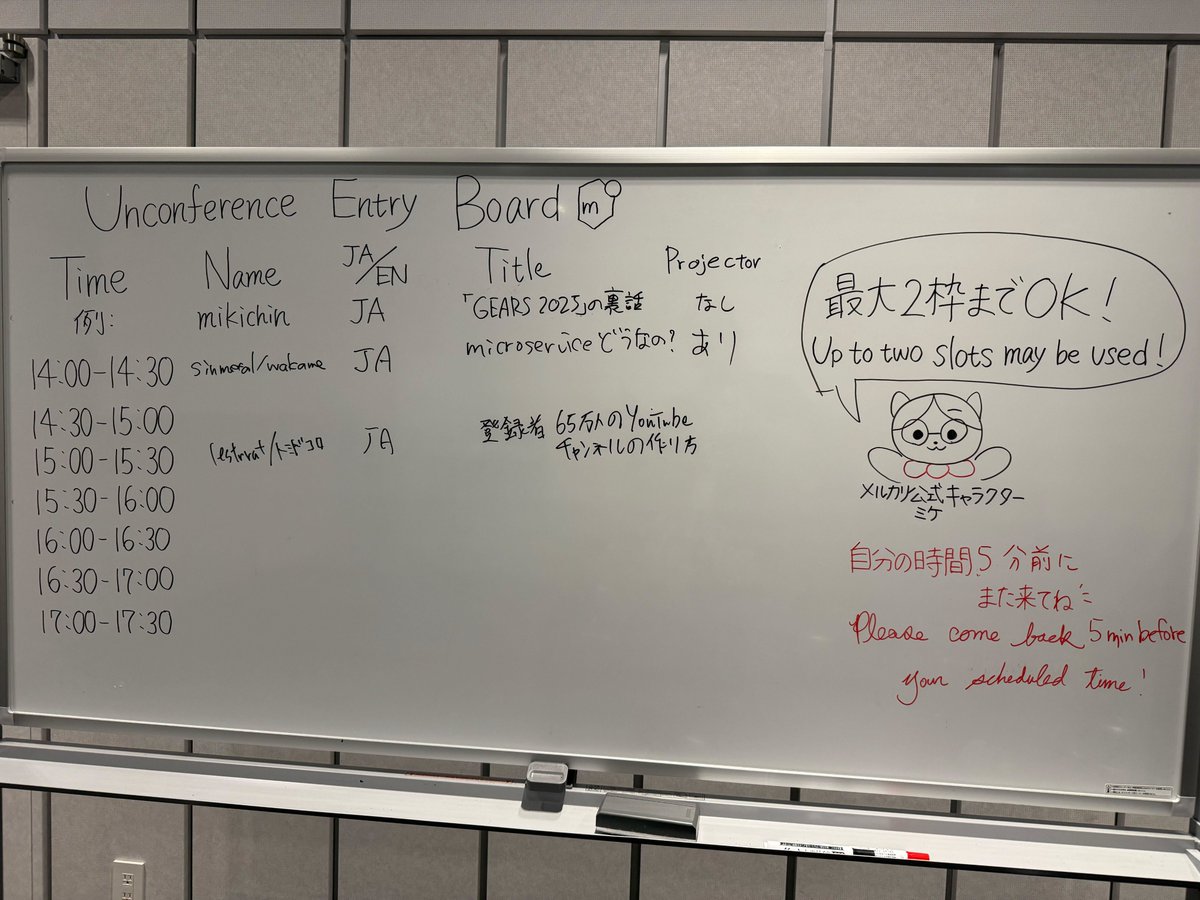 Unconference Entry Board m
Time Name JA/EN Title Projector
例: mikichin JA 「GEARS 2025」の裏話 なし
14:00-14:30 sinmetal/wakame JA microserviceどうなの? あり
14:30-15:00
15:00-15:30 lestrrat/ JA 登録者 65万人のYouTube
チャンネルの作り方
15:30-16:00
16:00-16:30
16:30-17:00
17:00-17:30
最大2枠までOK!
Up to two slots may be used!
メルカリ公式キャラクター
ミケ
自分の時間、5分前に
また来てね
Please come back 5 min before
your scheduled time!